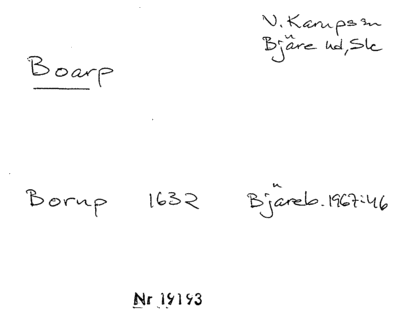 V. Karups sn
Bjäre hd, Sk
Boarp
Borup 1632 Bjäreb. 1967:46
Nr 19193